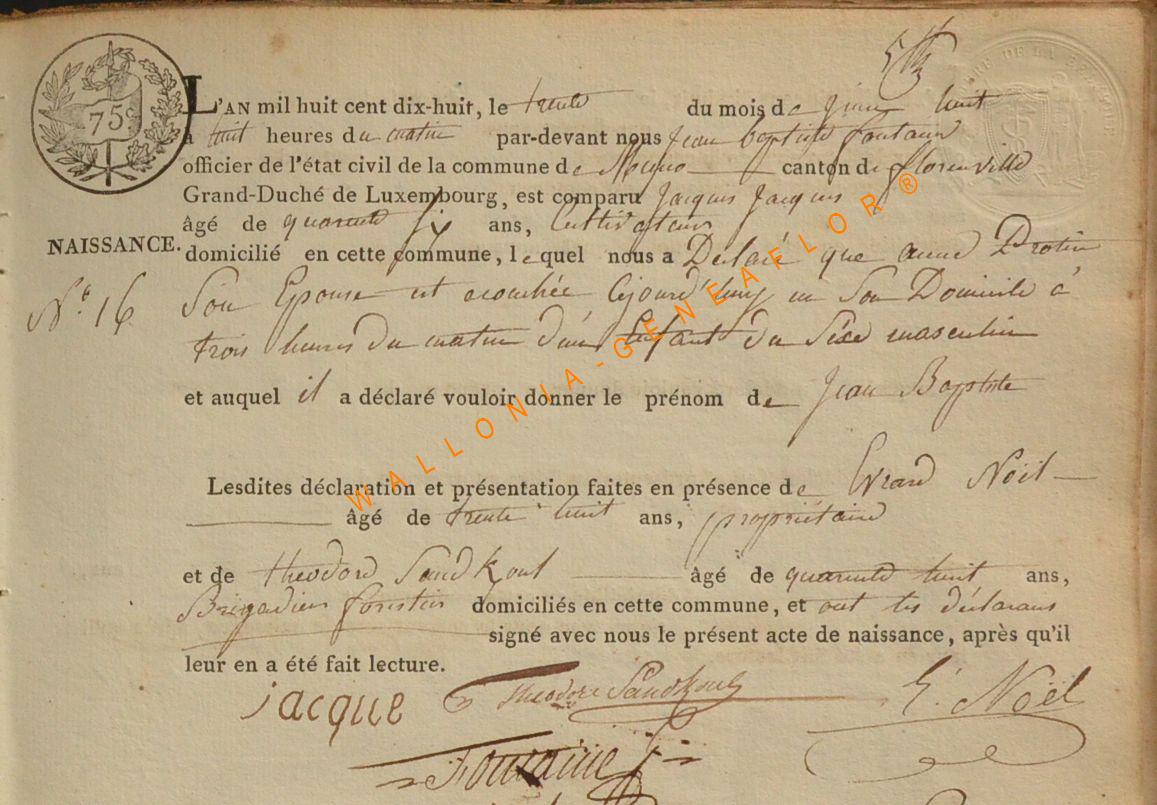 75
L'AN mil huit cent dix-huit, le trente du mois de juin huit
a huit heures du matin par-devant nous Jean baptiste fontaine
officier de l'état civil de la commune de canton de florenville
Grand-Duché de Luxembourg, est comparu Jacques Jacques
âgé de quarente six ans, Cultivateur
NAISSANCE.
domicilié en cette commune, lequel nous a Déclaré que anne Protin
N° 16
Son Epouse est acouchée Cejourd'huy en Son Domicile à
trois heures du matin d'un Enfant du Séxe masculin
et auquel il a déclaré vouloir donner le prénom de Jean Baptiste
Lesdites déclaration et présentation faites en présence de Evrard Noël
âgé de trente huit ans, propriétaire
et de théodore Sandkoul âgé de quarente huit ans,
Brigadier forestier domiciliés en cette commune, et ont les déclarans
signé avec nous le présent acte de naissance, après qu'il
leur en a été fait lecture.
jacque Theodore Sandkoul E. Noël
Fontaine
WALLONIA-GENEAFLOR®